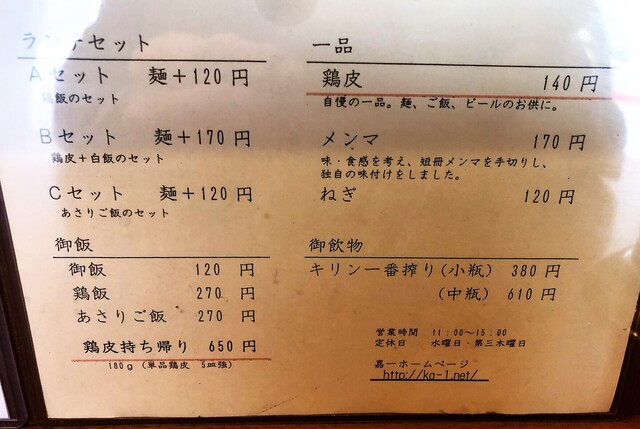 ランチセット
Aセット 麺+120円
鶏飯のセット
Bセット 麺+170円
鶏皮+白飯のセット
Cセット 麺+120円
あさりご飯のセット
御飯
御飯 120 円
鶏飯 270 円
あさりご飯 270 円
鶏皮持ち帰り 650 円
180g (単品鶏皮 5皿強)
一品
鶏皮 140 円
自慢の一品。麺、ご飯、ビールのお供に。
メンマ 170 円
味・食感を考え、短冊メンマを手切りし、
独自の味付けをしました。
ねぎ 120 円
御飲物
キリン一番搾り(小瓶) 380 円
(中瓶) 610 円
営業時間 11:00~15:00
定休日 水曜日・第三木曜日
嘉一ホームページ
http://ka-1.net/